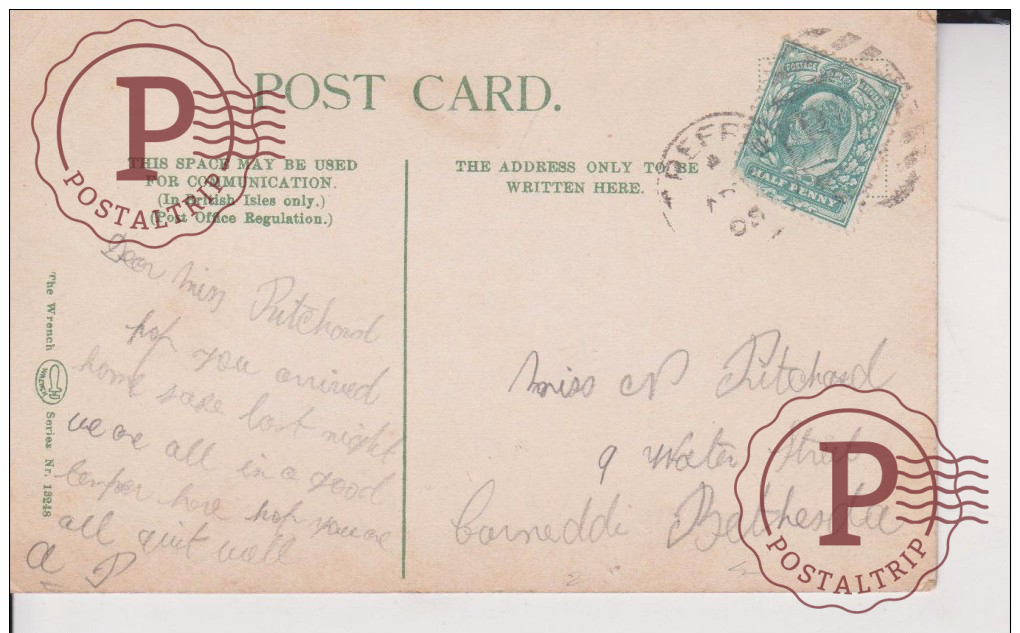 POST CARD.
THIS SPACE MAY BE USED
FOR COMMUNICATION.
(In British Isles only.)
(Post Office Regulation.)
THE ADDRESS ONLY TO BE
WRITTEN HERE.
POSTAGE
HALF PENNY
P
POSTALTRIP
Dear Miss Pritchard
hop you arrived
home safe last night
we are all in a good
temper here hop you are
all quit well
A P
The Wrench
WRENCH
Series Nr. 13248
Miss N Pritchard
9 Water Street
Carneddi Bethesda
P
POSTALTRIP